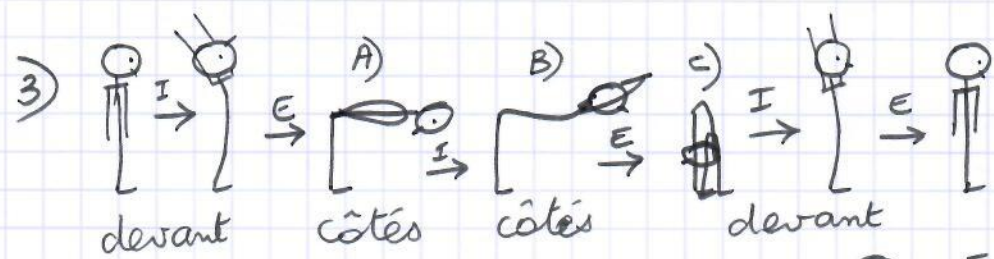 3) I E A) I B) E C) I E
devant côtés côtés devant